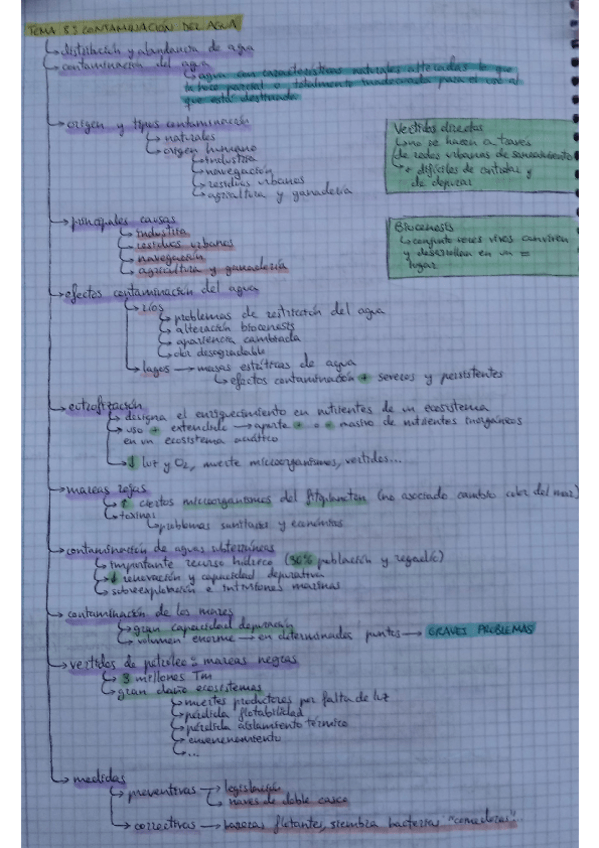 TEMA 8.3 CONTAMINACIÓN DEL AGUA
distribución y abundancia de agua
contaminación del agua
agua con características naturales alteradas lo que
la hace parcial o totalmente inadecuada para el uso al
que está destinada
origen y tipos contaminación
naturales
origen humano
industria
navegación
residuos urbanos
agricultura y ganadería
Vertidos directos
no se hacen a traves
de redes urbanas de saneamiento
difíciles de controlar y
de depurar
principales causas
industria
residuos urbanos
navegación
agricultura y ganadería
Biocenosis
conjunto seres vivos conviven
y desarrollan en un =
lugar
efectos contaminación del agua
ríos
problemas de restricción del agua
alteración biocenosis
apariencia cambiada
olor desagradable
lagos → masas estáticas de agua
efectos contaminación + severos y persistentes
eutrofización
designa el enriquecimiento en nutrientes de un ecosistema
uso + extendido → aporte + o - masivo de nutrientes inorgánicos
en un ecosistema acuático
↓ luz y O₂, muerte microorganismos, vertidos...
mareas rojas
↑ ciertos microorganismos del fitoplancton (no asociado cambio color del mar)
toxinas
problemas sanitarios y económicos
contaminación de aguas subterráneas
importante recurso hídrico (30% población y regadío)
↓ renovación y capacidad depurativa
sobreexplotación e intrusiones marinas
contaminación de los mares
gran capacidad depuración
volumen enorme → en determinados puntos → GRAVES PROBLEMAS
vertidos de petróleo: mareas negras
3 millones Tm
gran daño ecosistemas
muertes productores por falta de luz
pérdida flotabilidad
pérdida aislamiento térmico
envenenamiento
...
medidas
preventivas → legislación
naves de doble casco
correctivas → barreras flotantes, siembra bacterias "comedoras"...